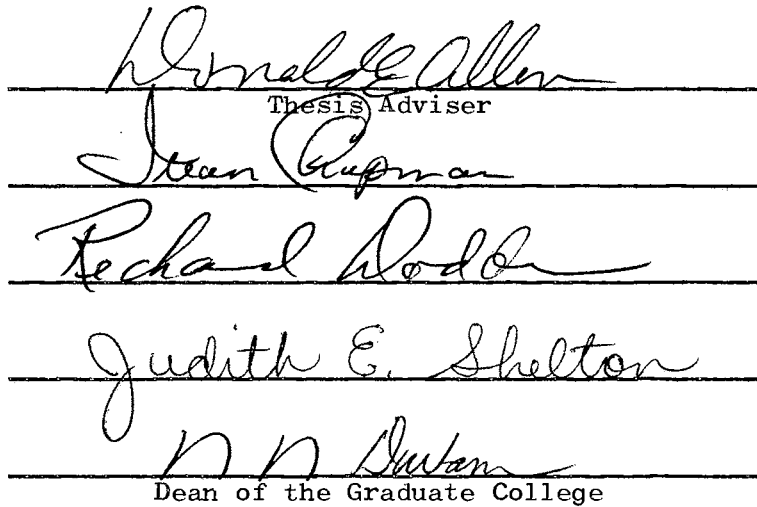 Donald E Allen
Thesis Adviser
Ivan Chapman
Richard Dodder
Judith E. Shelton
N N Durham
Dean of the Graduate College